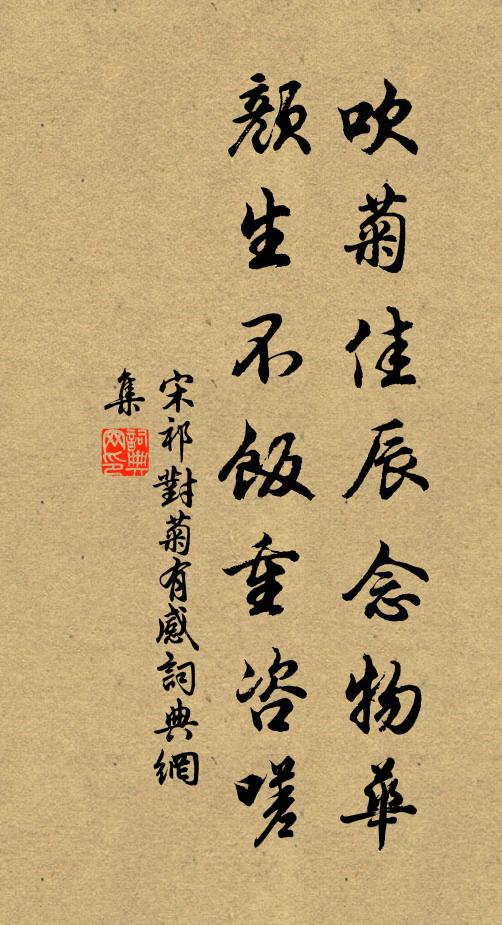 吹菊佳辰念物華
顏生不飯重咨嗟
宋祁對菊有感詞典網
集
詞典
網印